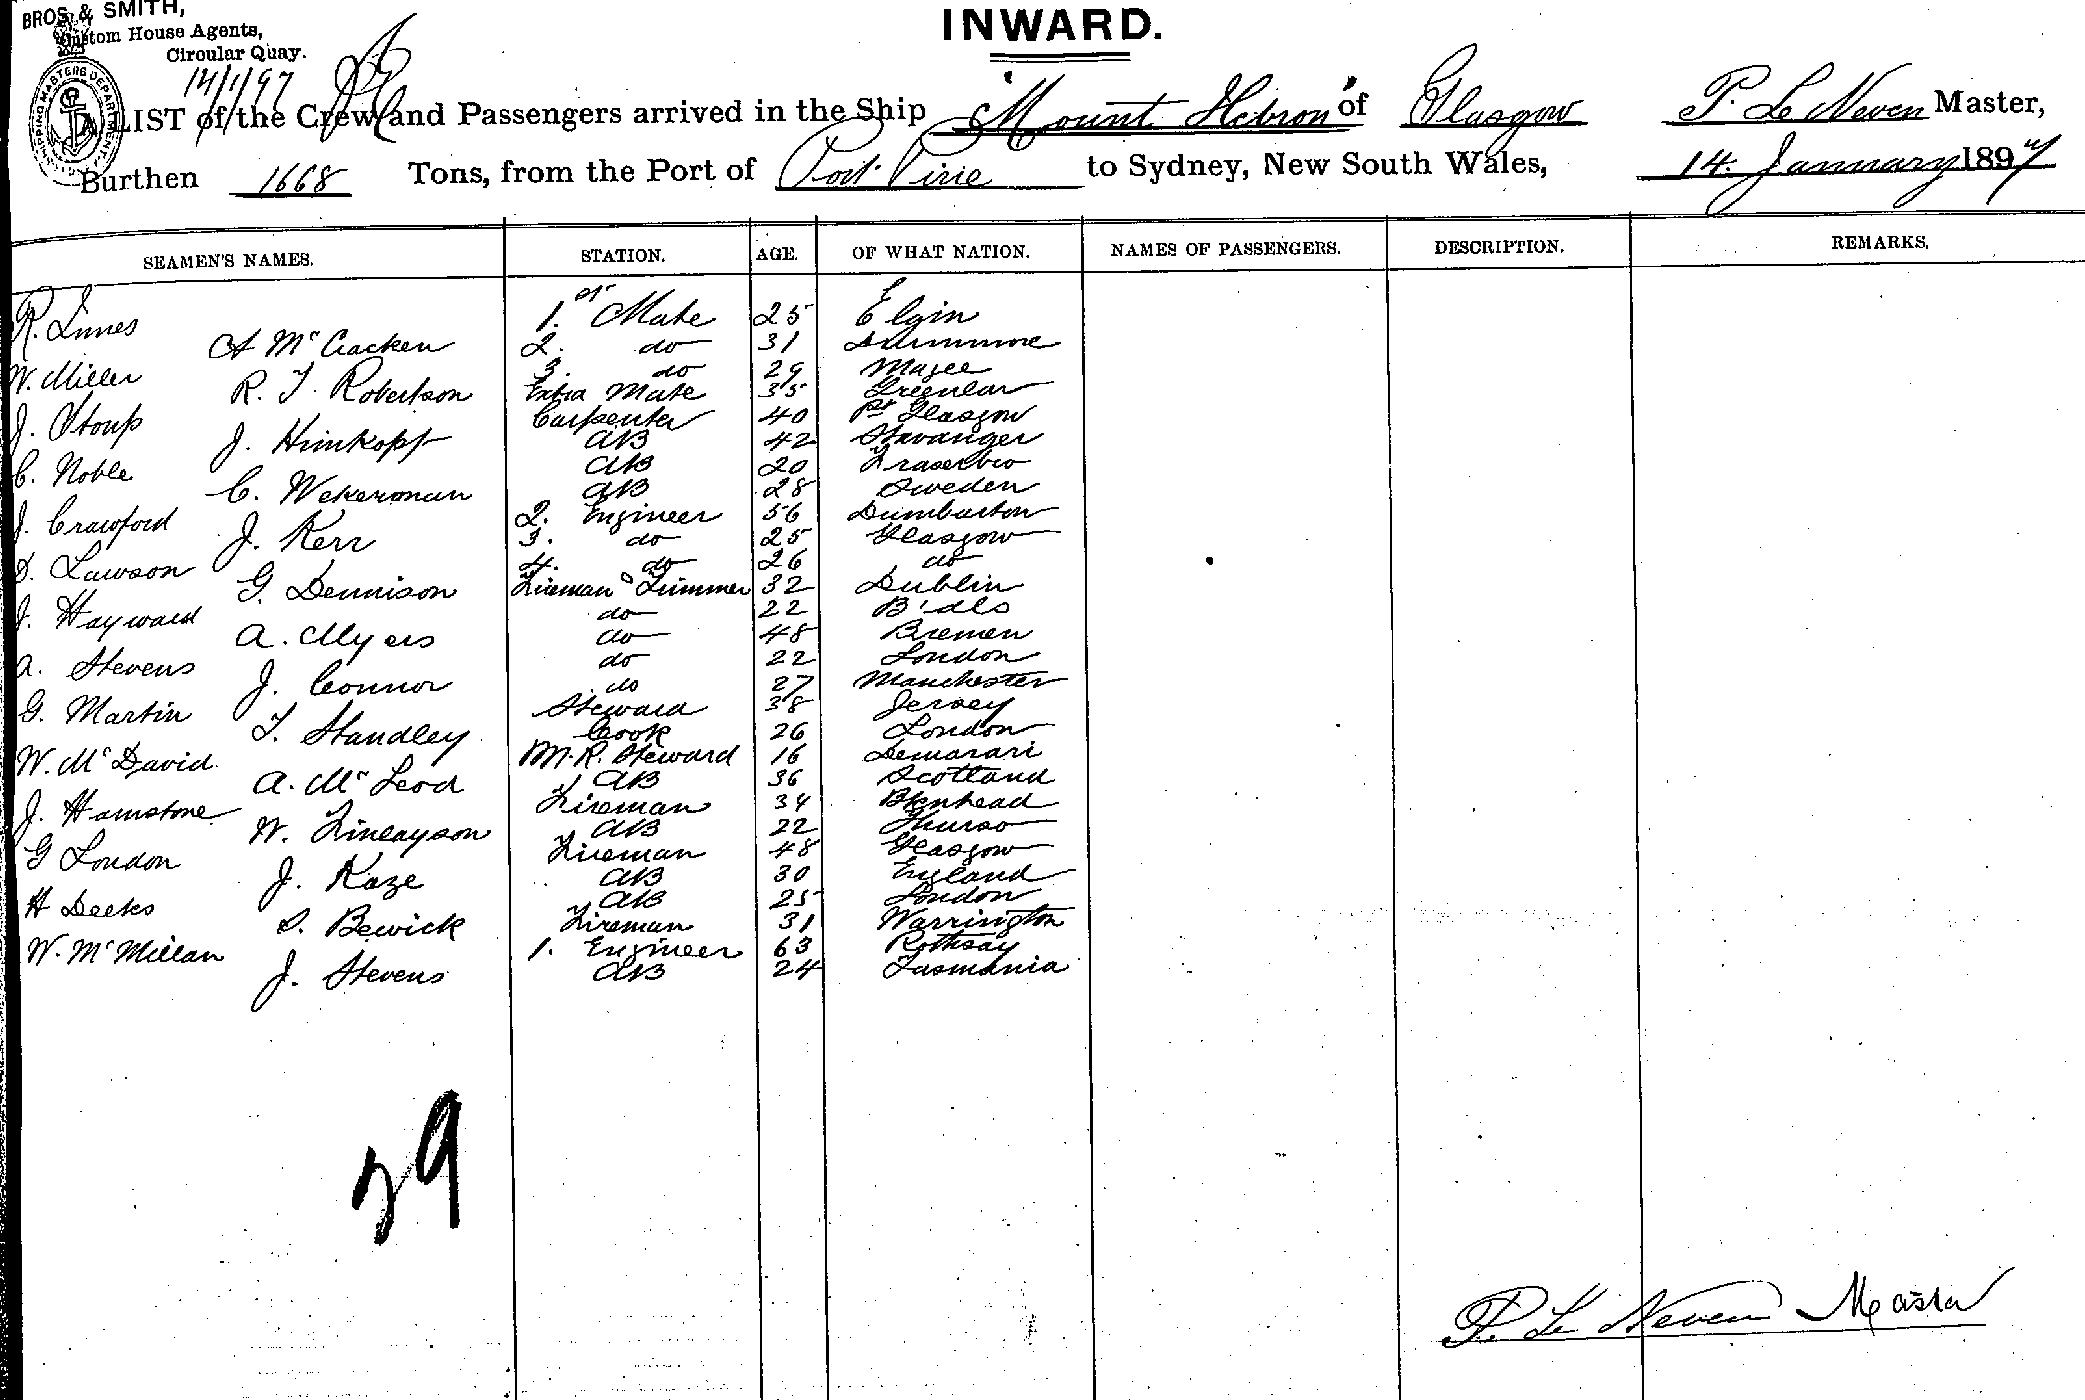 BROS. & SMITH,
Custom House Agents,
Circular Quay.
INWARD.
14/1/97
A LIST of the Crew and Passengers arrived in the Ship "Mount Hebron" of Glasgow P. Le Neven Master,
Burthen 1668 Tons, from the Port of Port Pirie to Sydney, New South Wales, 14. January 1897
SEAMEN'S NAMES. STATION. AGE. OF WHAT NATION. NAMES OF PASSENGERS. DESCRIPTION. REMARKS.
R. Innes 1.st Mate 25 Elgin
A McCracken 2. do 31 Drummore
W. Miller 3. do 29 Magee
R. T. Robertson Extra Mate 35 Greenlaw
J. Stoup Carpenter 40 Pt Glasgow
J. Himkopf AB 42 Stavanger
C. Noble AB 20 Fraserbro
C. Wekerman AB 28 Sweden
J. Crawford 2. Engineer 56 Dumbarton
J. Kerr 3. do 25 Glasgow
D. Lawson 4. do 26 do
G. Dennison Fireman & Trimmer 32 Dublin
J. Hayward do 22 B'dos
A. Myers do 48 Bremen
A. Stevens do 22 London
J. Connor do 27 Manchester
G. Martin Steward 38 Jersey
T. Standley Cook 26 London
W. McDavid M.R. Steward 16 Demarari
A. McLeod AB 36 Scotland
J. Hamstone Fireman 34 B'kenhead
W. Finlayson AB 22 Thurso
G London Fireman 48 Glasgow
J. Kaze AB 30 England
H Deeks AB 25 London
S. Bewick Fireman 31 Warrington
W. McMillan 1. Engineer 63 Rothsay
J. Stevens AB 24 Tasmania
29
P. Le Neven Master